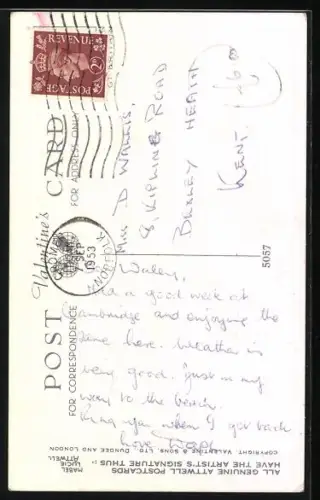 POSTAGE
REVENUE
2D
Valentine's
POST CARD
FOR CORRESPONDENCE
FOR ADDRESS ONLY
CROMER
SEP
1953
NORFOLK
Miss D Wallis,
8, Kipling Road
Bexley Heath
Kent.
5057
a good week at
Cambridge and enjoying the
time here. Weather is
being good. Just on my
way to the beach.
Ring you when I get back
love
MABEL
LUCIE
ATTWELL
ALL GENUINE ATTWELL POSTCARDS
HAVE THE ARTIST'S SIGNATURE THUS
COPYRIGHT. VALENTINE & SONS, LTD. DUNDEE AND LONDON